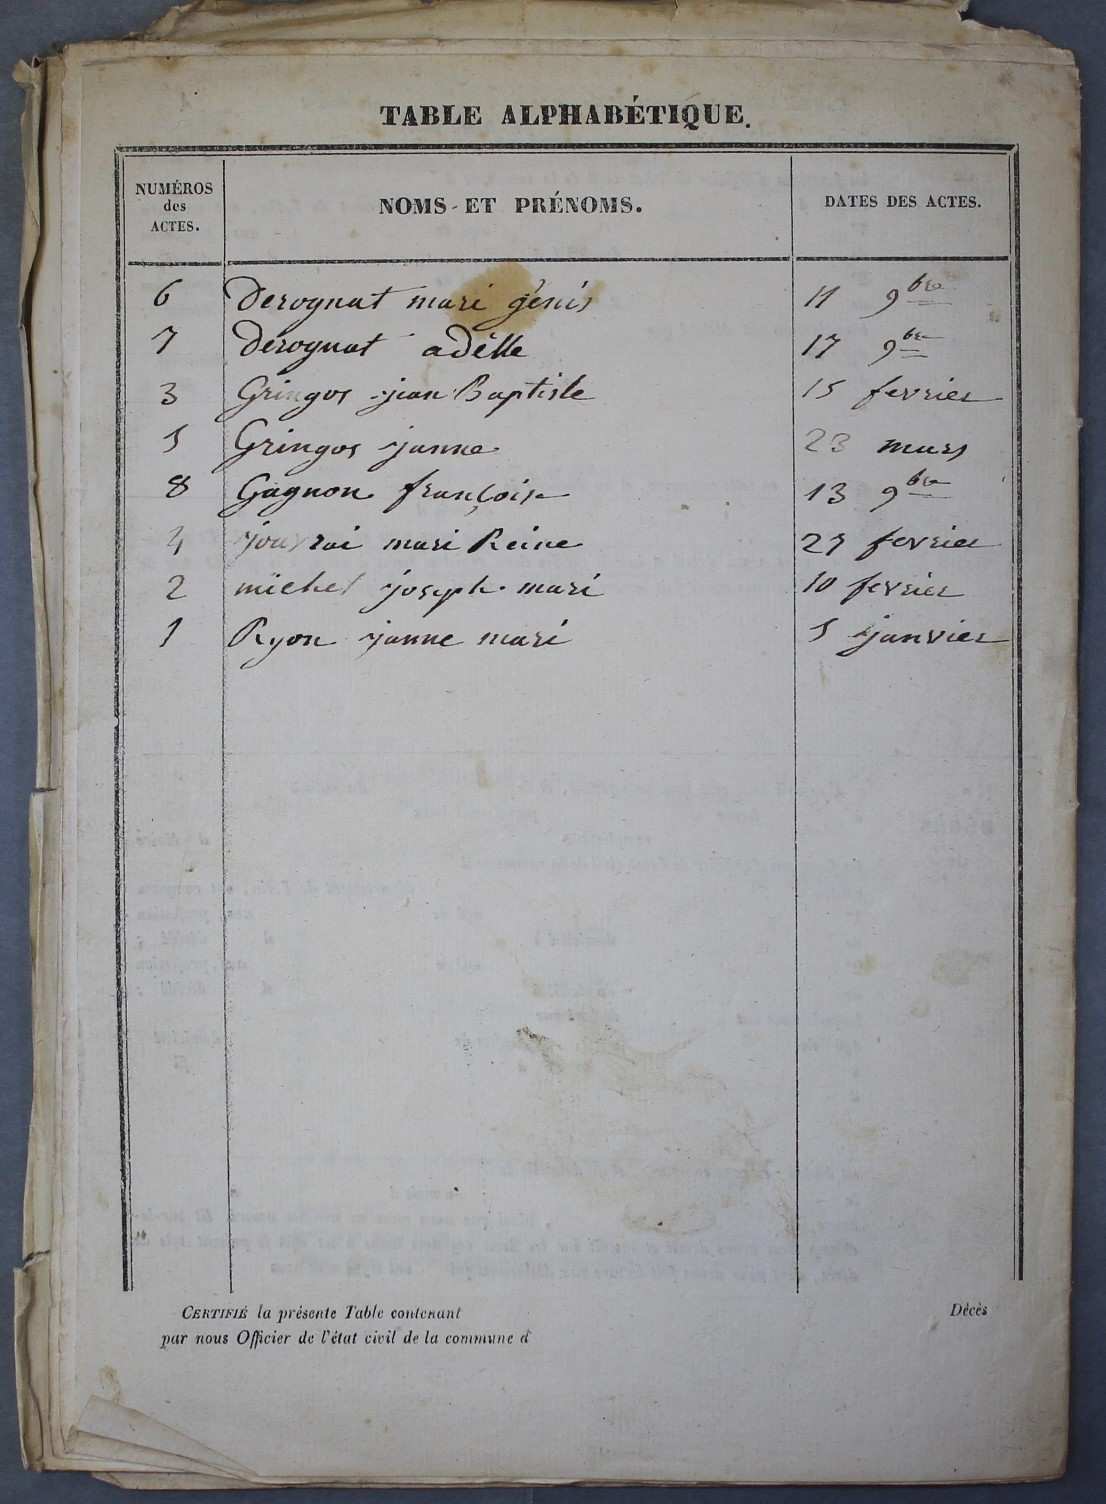 TABLE ALPHABÉTIQUE.
NUMÉROS
des
ACTES.
NOMS ET PRÉNOMS.
DATES DES ACTES.
6 Derognat mari génis 11 9bre
7 Derognat adélle 17 9bre
3 Gringos jean Baptiste 15 fevrier
5 Gringos janne 23 mars
8 Gagnon françoise 13 9bre
4 jouvrai mari Reine 27 fevrier
2 michel joseph mari 10 fevrier
1 Ryon janne mari 5 janvier
CERTIFIÉ la présente Table contenant Décès
par nous Officier de l'état civil de la commune d